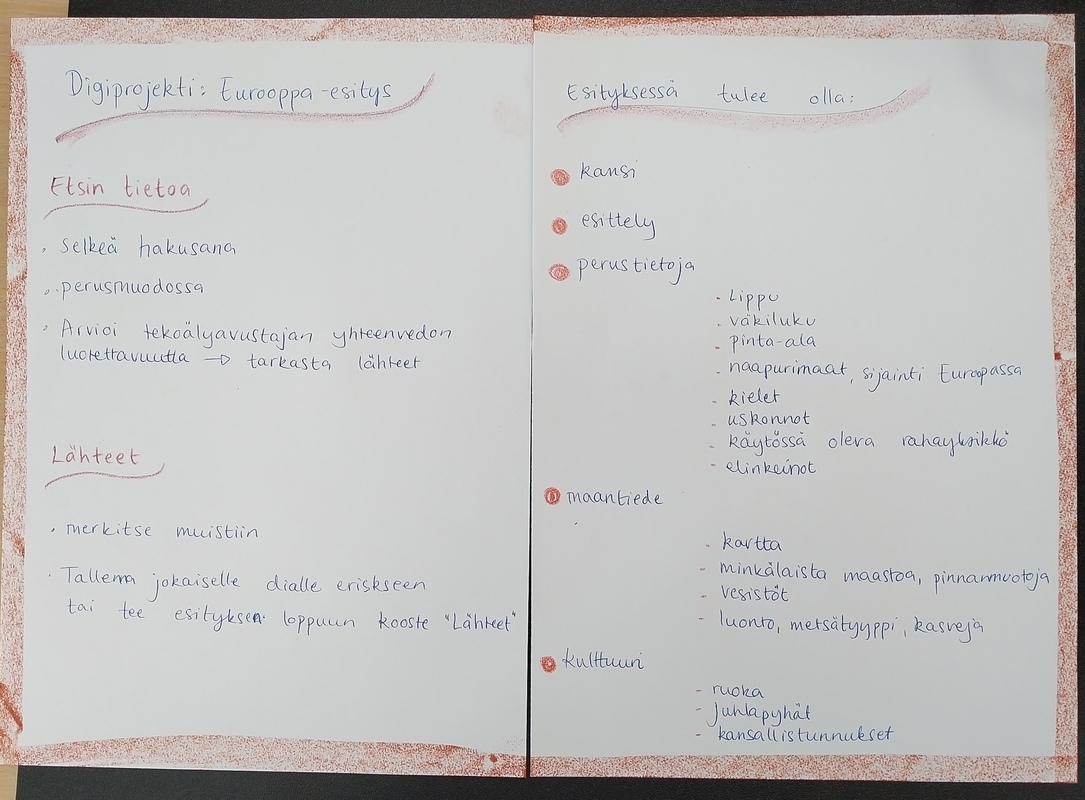 Digiprojekti: Eurooppa-esitys
Etsin tietoa
• selkeä hakusana
• perusmuodossa
• Arvioi tekoälyavustajan yhteenvedon
luotettavuutta → tarkasta lähteet
Lähteet
• merkitse muistiin
• Tallenna jokaiselle dialle erikseen
tai tee esityksen loppuun kooste "Lähteet"
Esityksessä tulee olla:
kansi
esittely
perustietoja
- Lippu
- väkiluku
- pinta-ala
- naapurimaat, sijainti Euroopassa
- kielet
- uskonnot
- käytössä oleva rahayksikkö
- elinkeinot
maantiede
- kartta
- minkälaista maastoa, pinnanmuotoja
- vesistöt
- luonto, metsätyyppi, kasveja
kulttuuri
- ruoka
- juhlapyhät
- kansallistunnukset